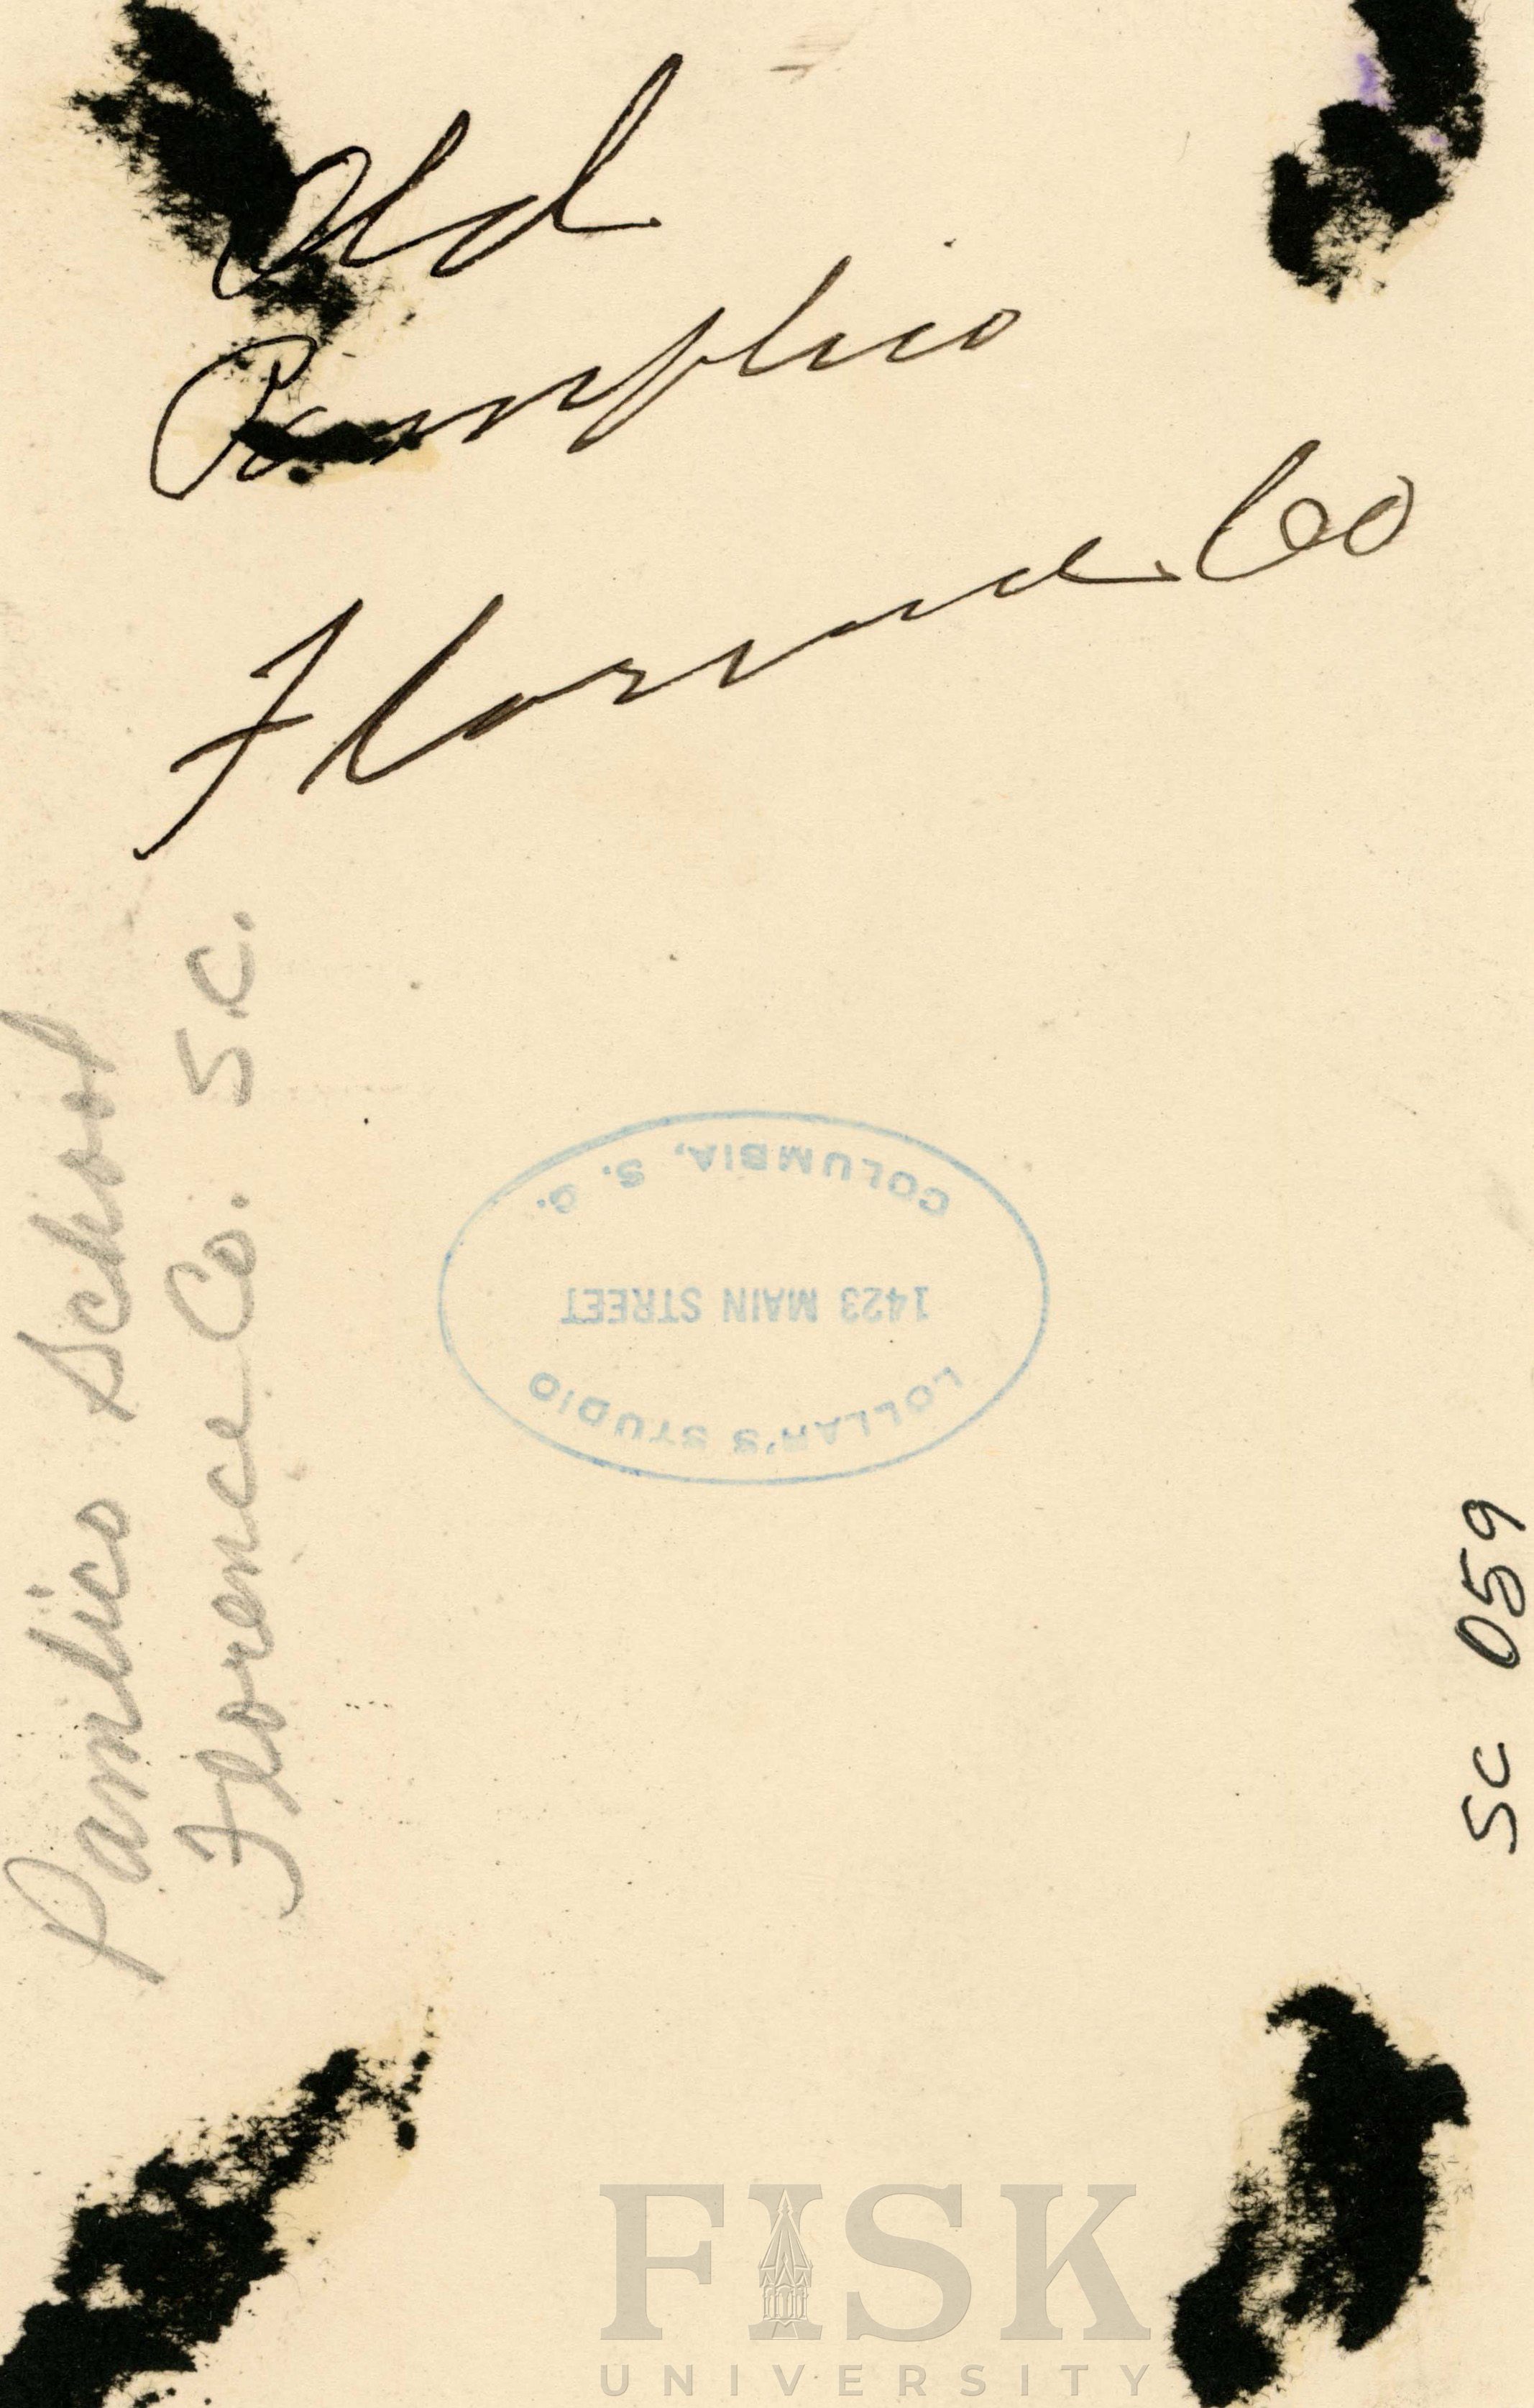 Old
Pamplico
Florence Co
Pamlico School
Florence Co. S.C.
COLUMBIA, S. C.
1423 MAIN STREET
LOLLAR'S STUDIO
SC 059
FISK
UNIVERSITY